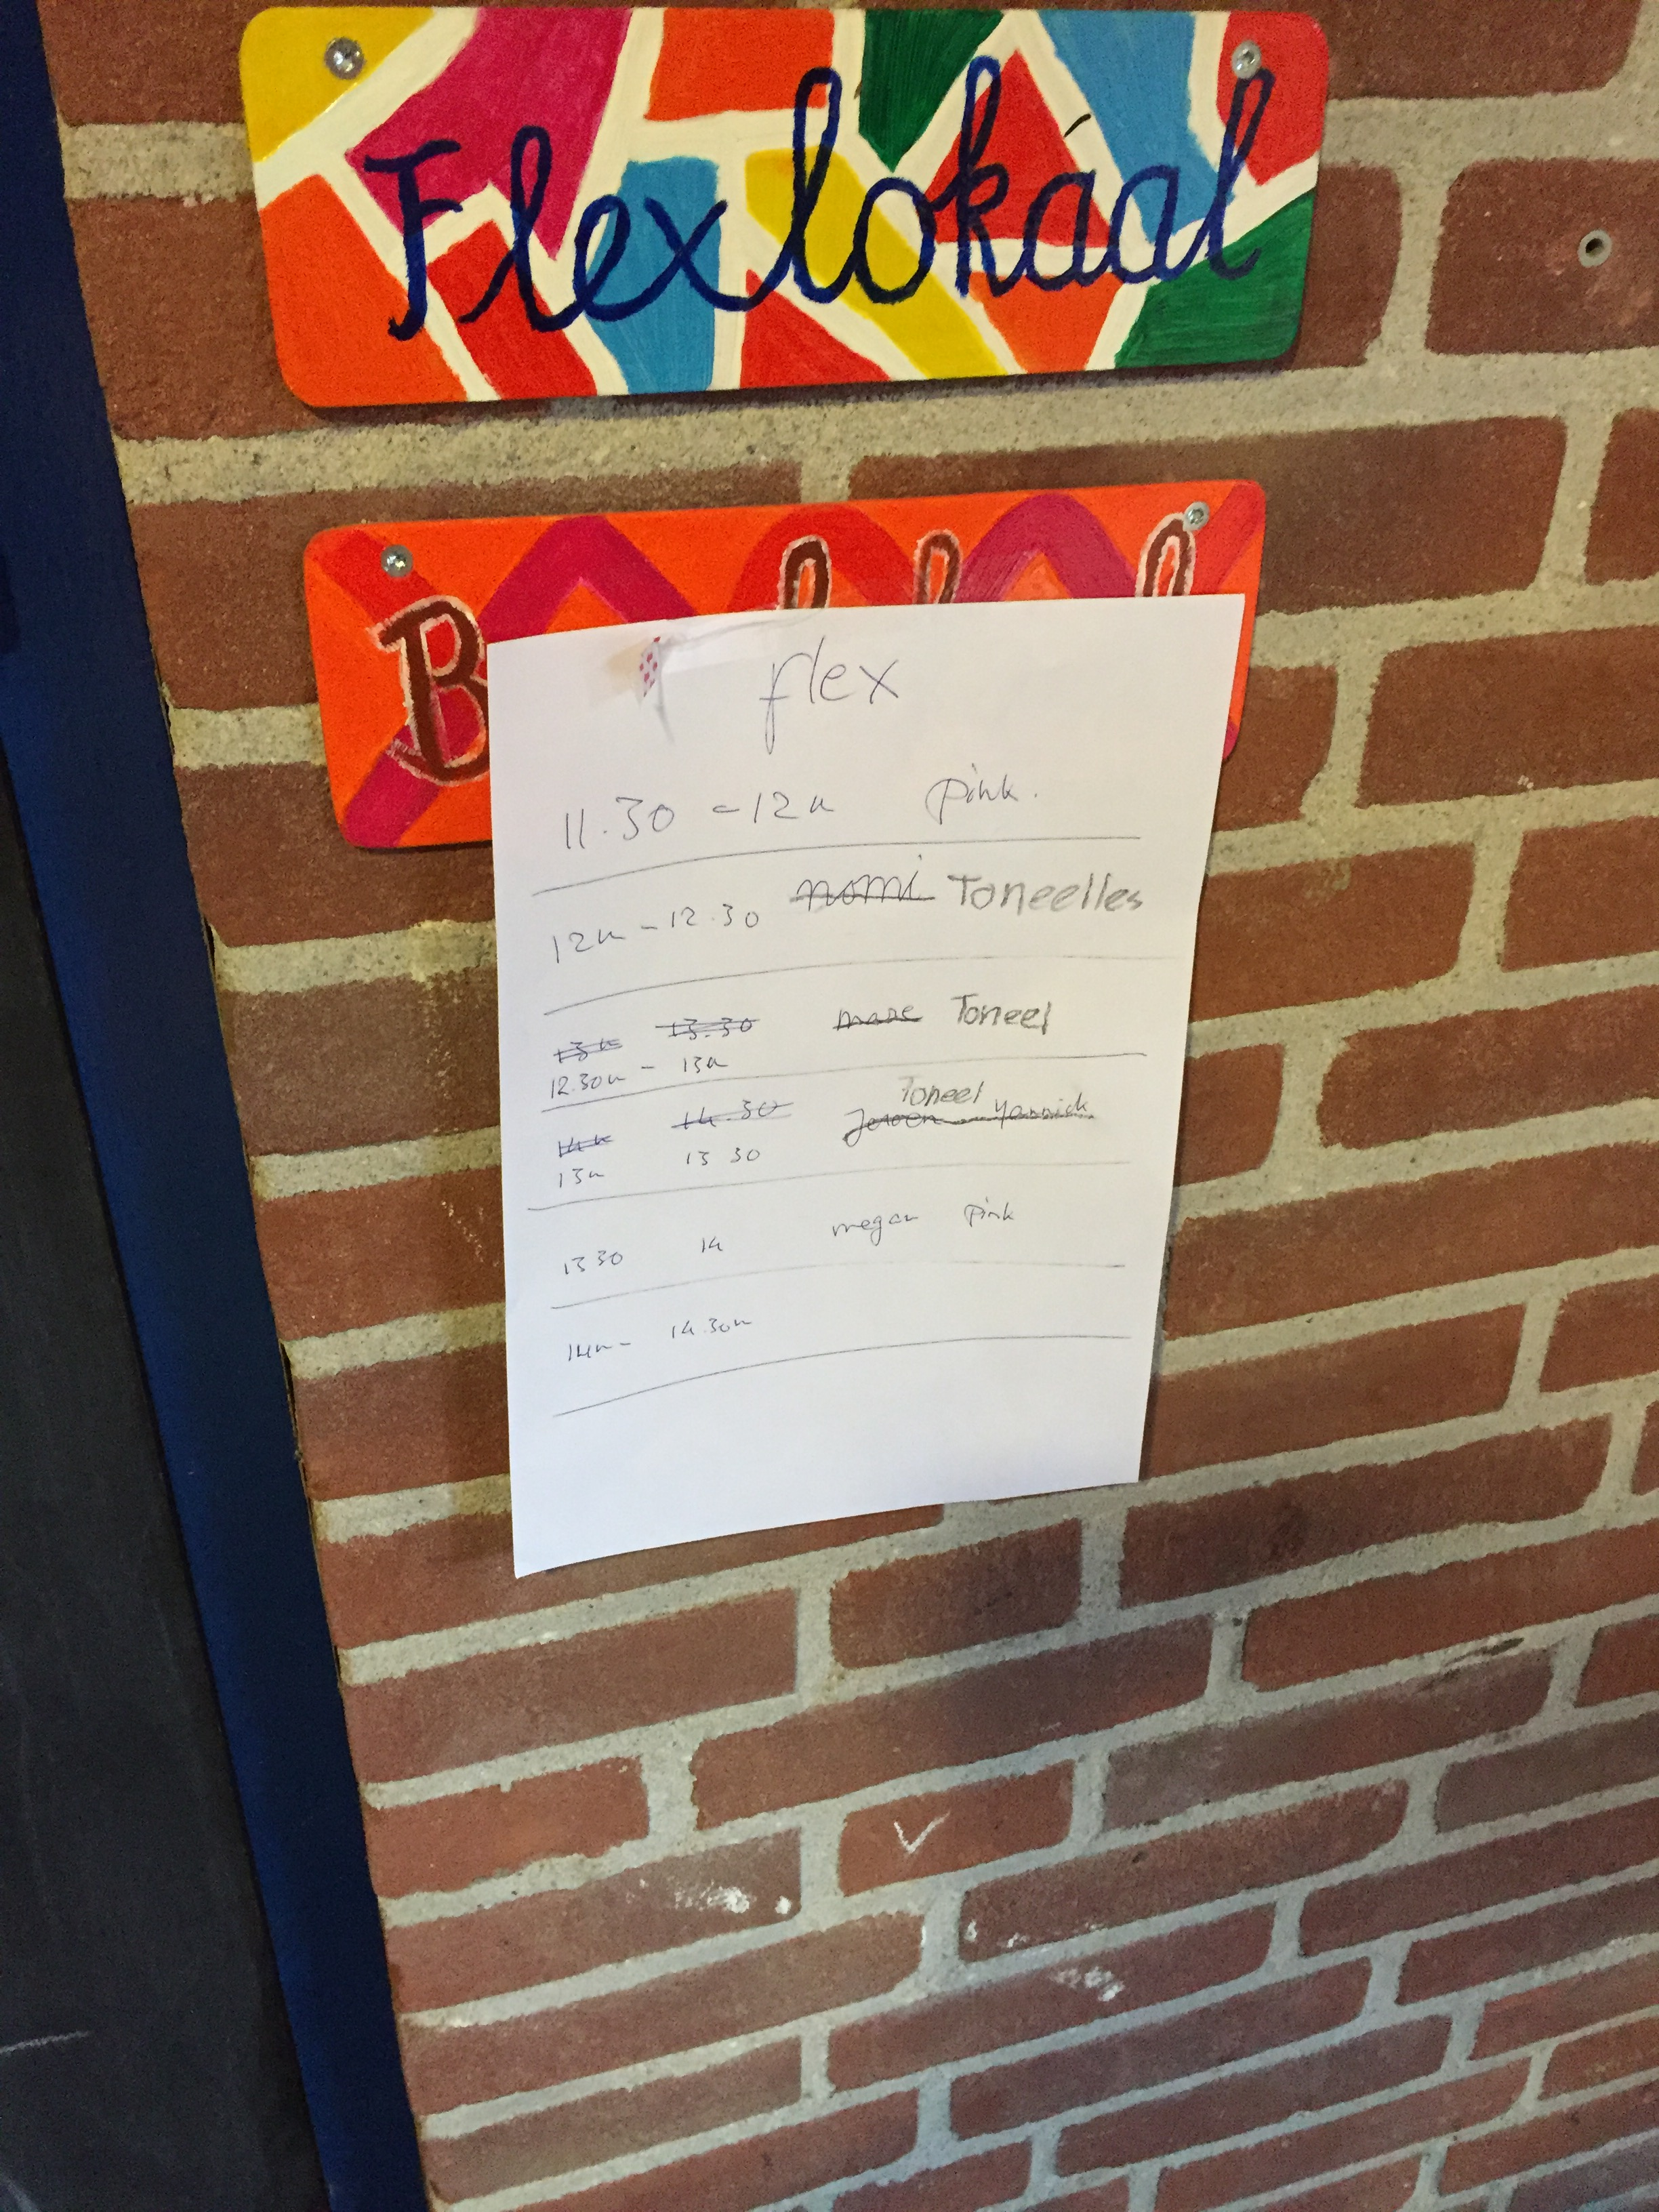 Flexlokáal
B
flex
11.30 - 12u pink.
12u - 12.30 nomi Toneelles
13u 13.30 Toneel
12.30u - 13u
Toneel
14u 14.30 Jeroen Yannick
13u 13 30
13 30 14 megan pink
14u - 14.30u